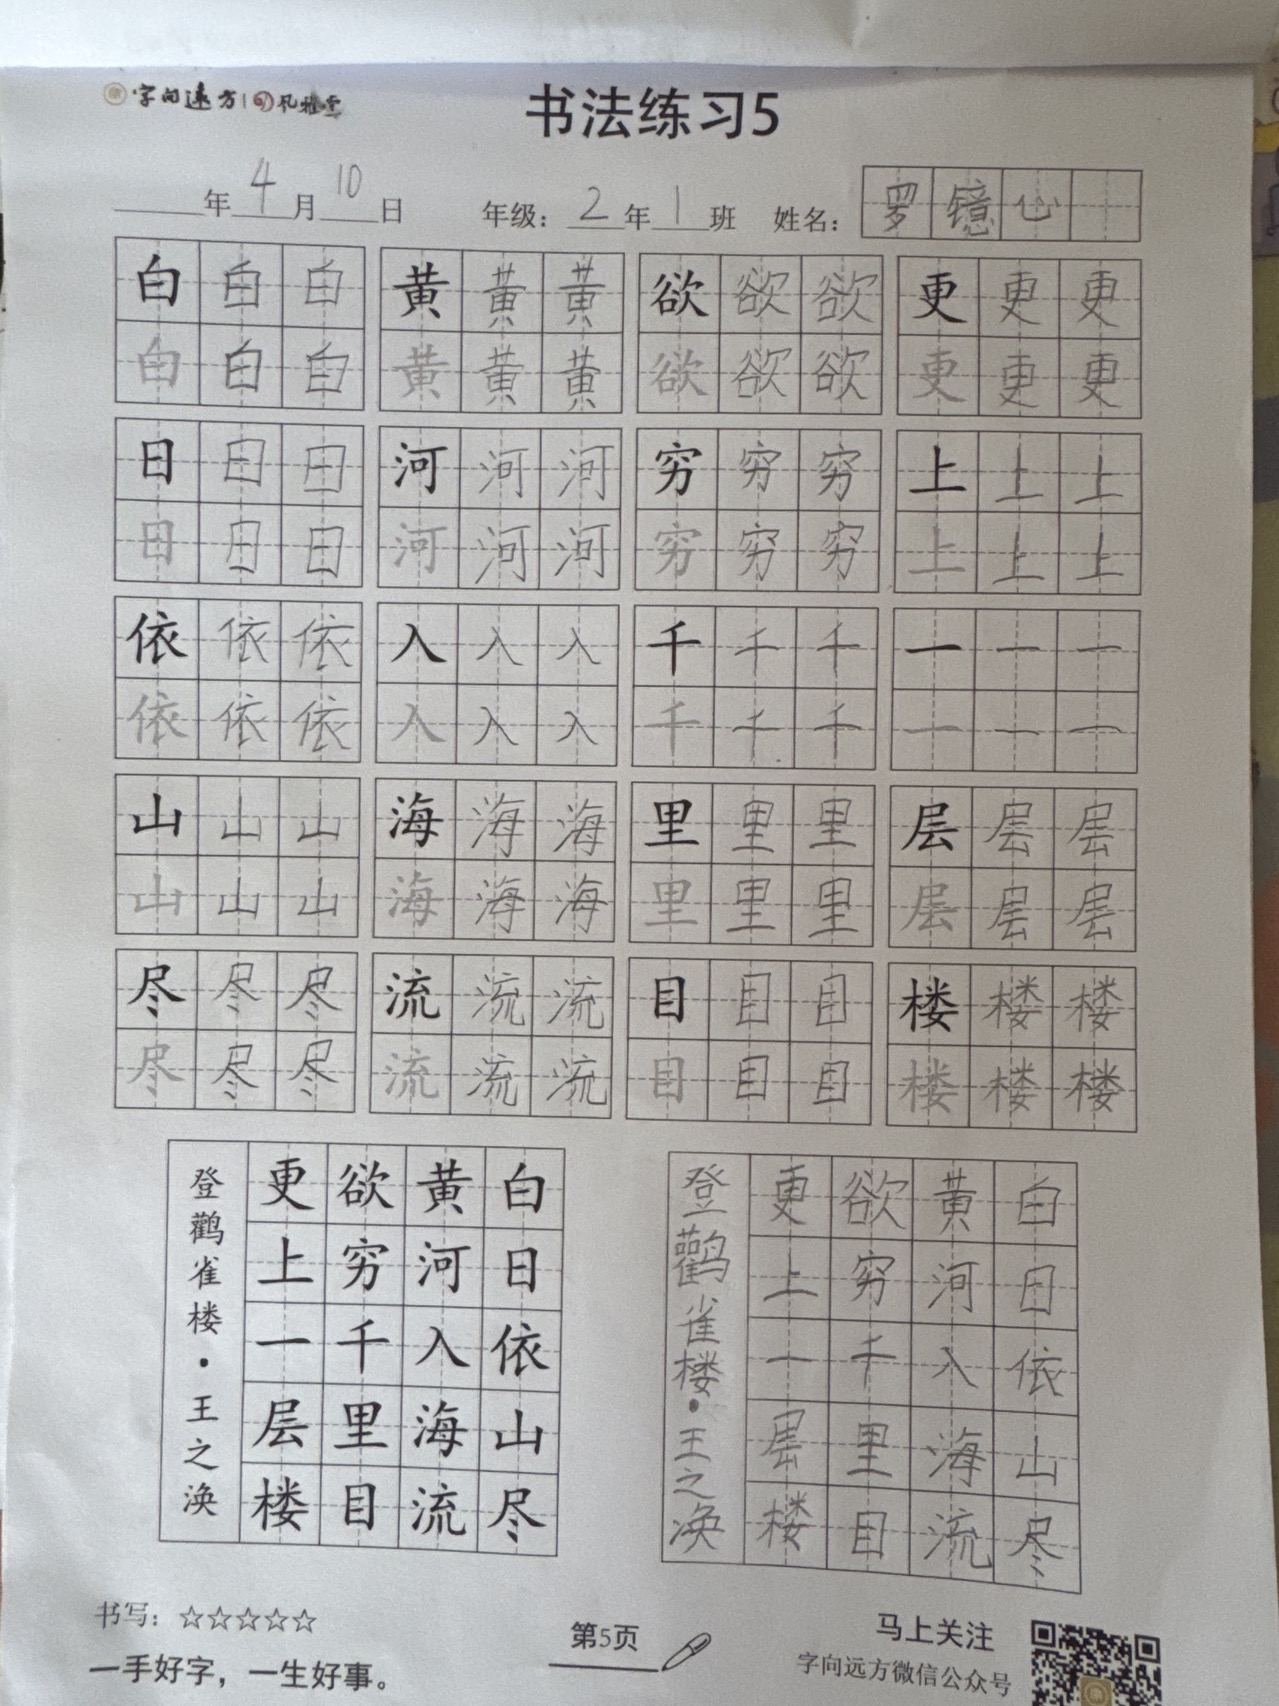 字向远方 | 风雅堂
书法练习5
年4月10日 年级：2年1班 姓名：罗镱心
白白白 黄黄黄 欲欲欲 更更更
白白白 黄黄黄 欲欲欲 更更更
日日日 河河河 穷穷穷 上上上
日日日 河河河 穷穷穷 上上上
依依依 入入入 千千千 一一一
依依依 入入入 千千千 一一一
山山山 海海海 里里里 层层层
山山山 海海海 里里里 层层层
尽尽尽 流流流 目目目 楼楼楼
尽尽尽 流流流 目目目 楼楼楼
白日依山尽
黄河入海流
欲穷千里目
更上一层楼
登鹳雀楼·王之涣
白日依山尽
黄河入海流
欲穷千里目
更上一层楼
登鹳雀楼·王之涣
书写：☆☆☆☆☆
一手好字，一生好事。
第5页
马上关注
字向远方微信公众号